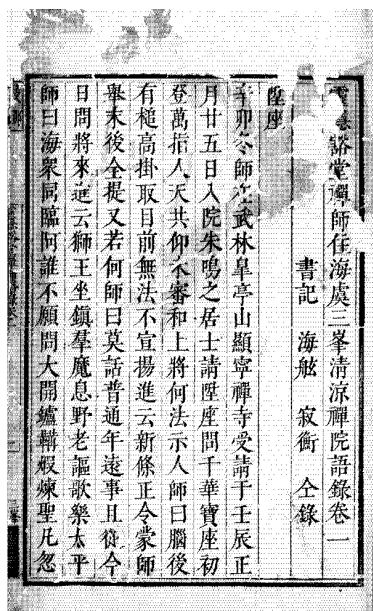 豁堂禪師住海虞三峯清涼禪院語錄卷一
書記 海舷 寂衝 仝錄
陞座
辛卯冬師在武林皐亭山顯寧禪寺受請于壬辰正
月廿五日入院朱鳴之居士請陞座問千華寶座初
登萬指人天共仰不審和上將何法示人師曰腦後
有槌高掛取目前無法不宣揚進云新條正令蒙師
舉末後全提又若何師曰莫話普通年遠事且從今
日問將來進云獅王坐鎮羣魔息野老謳歌樂太平
師曰海衆同臨阿誰不願問大開鑪鞴煆煉聖凡忽